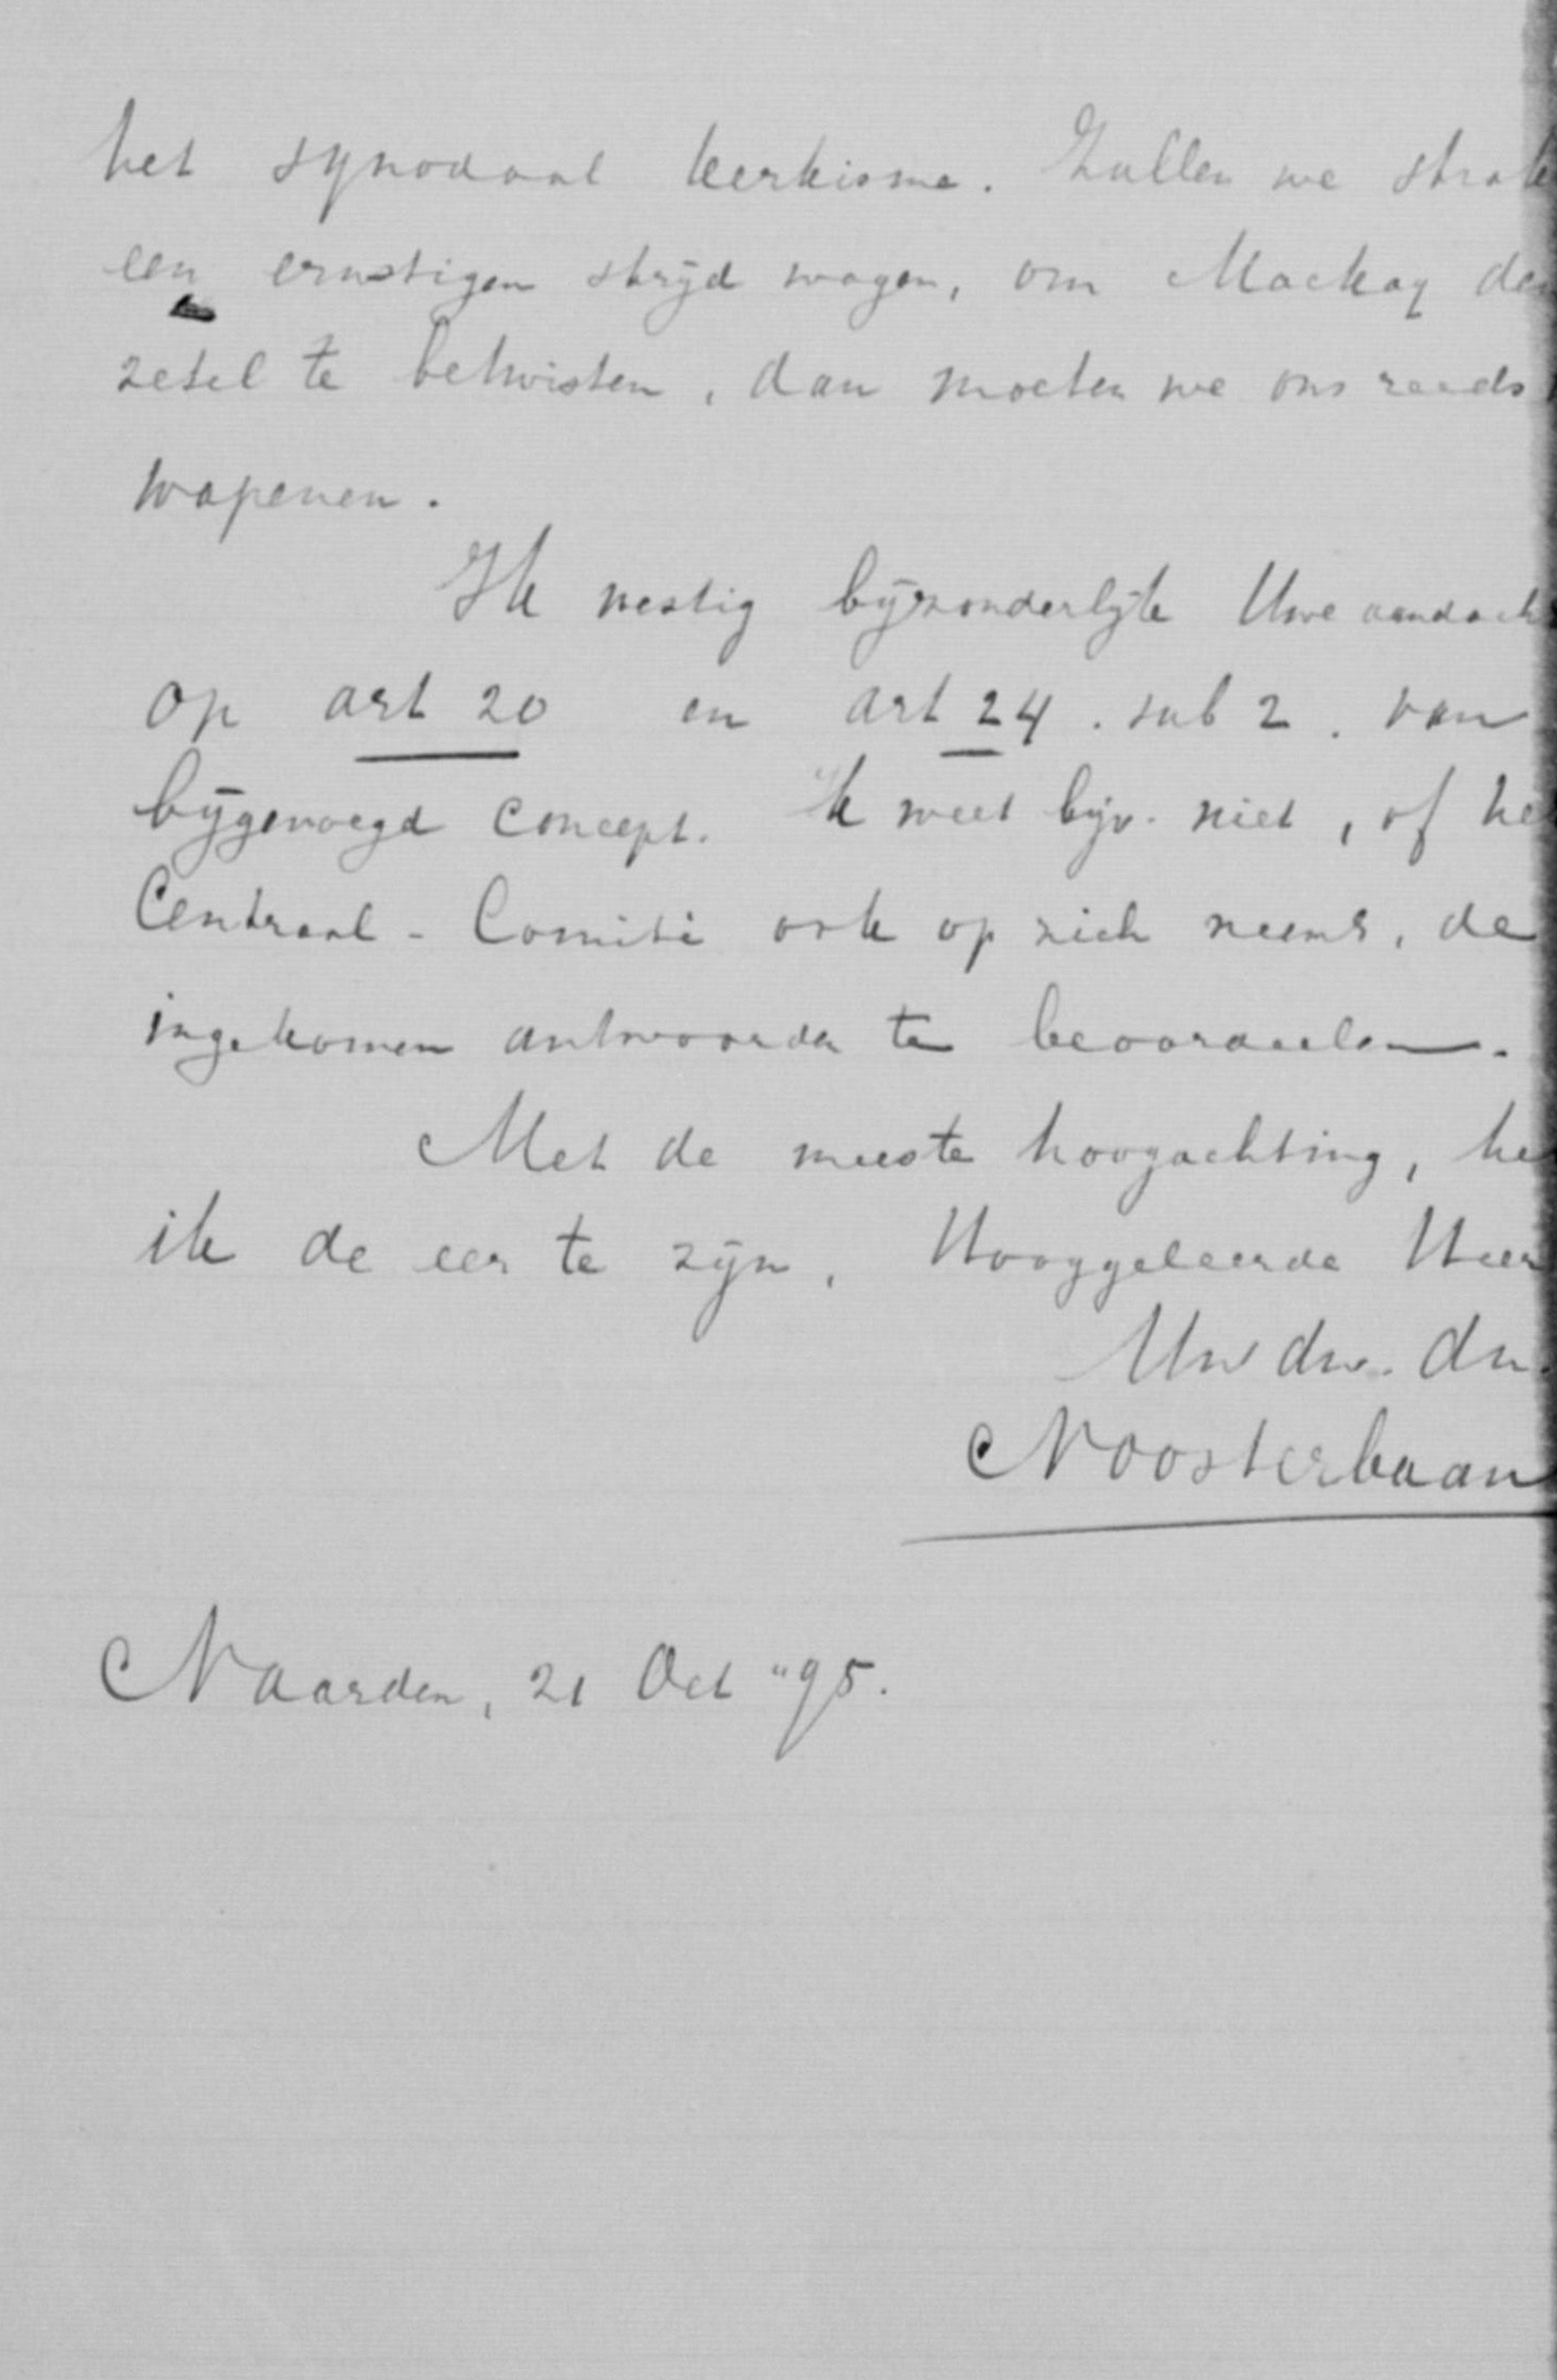 het synodaal kerkisme. Zullen we strak
een ernstigen strijd wagen, om Mackay den
zetel te betwisten, dan moeten we ons reeds
wapenen.
Ik vestig bijzonderlijk Uwe aandacht
op art 20 en art 24. sub 2. van
bijgevoegd concept. Ik weet bijv. niet, of he
Centraal-Comité ook op zich neemt, de
ingekomen antwoorden te beoordeelen.
Met de meeste hoogachting, he
ik de eer te zijn, Hooggeleerde Heer
Uw dw. dn.
Noosterbaan
Naarden, 21 Oct "95.